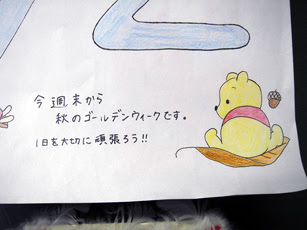 今週末から
秋のゴールデンウィークです。
1日を大切に頑張ろう!!